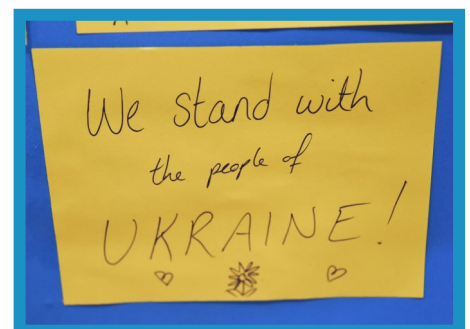 We stand with
the people of
UKRAINE!